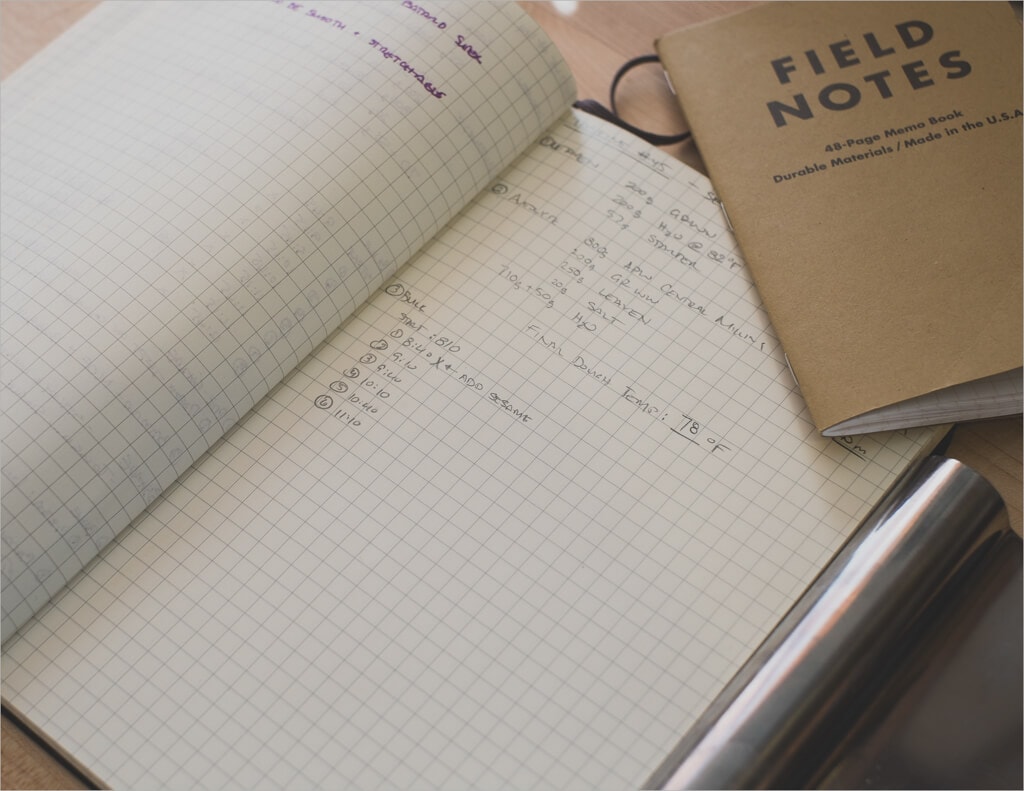 BE SMOOTH + STRETCHABLE
#45 -
① LEAVEN
200g GRWW
200g H₂O @ 82°F
52g STARTER
② AUTOLYSE
800g APW CENTRAL MILLING
GRWW
250g LEAVEN
20g SALT
710g + 50g H₂O
FINAL DOUGH TEMP: 78 °F
③ BULK
START: 810
① 8:40 X ← ADD SESAME
② 9:10
③ 9:40
④ 10:10
⑤ 10:40
⑥ 11:40
pm
FIELD
NOTES
48-Page Memo Book
Durable Materials / Made in the U.S.A